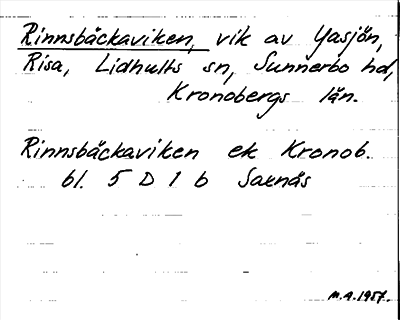 Rinnsbäckaviken, vik av Yasjön,
Risa, Lidhults sn, Sunnerbo hd,
Kronobergs län.
Rinnsbäckaviken ek Kronob.
bl. 5 D 1 b Saxnäs
M.A. 1957.